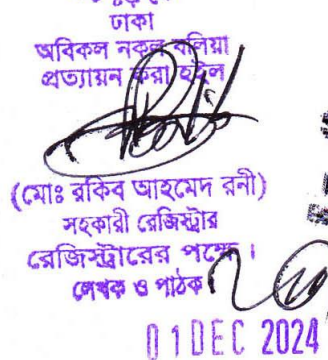 ঢাকা
অবিকল নকল বলিয়া
প্রত্যায়ন করা হইল
(মোঃ রকিব আহমেদ রনী)
সহকারী রেজিস্ট্রার
রেজিস্ট্রারের পক্ষে।
লেখক ও পাঠক
01 DEC 2024